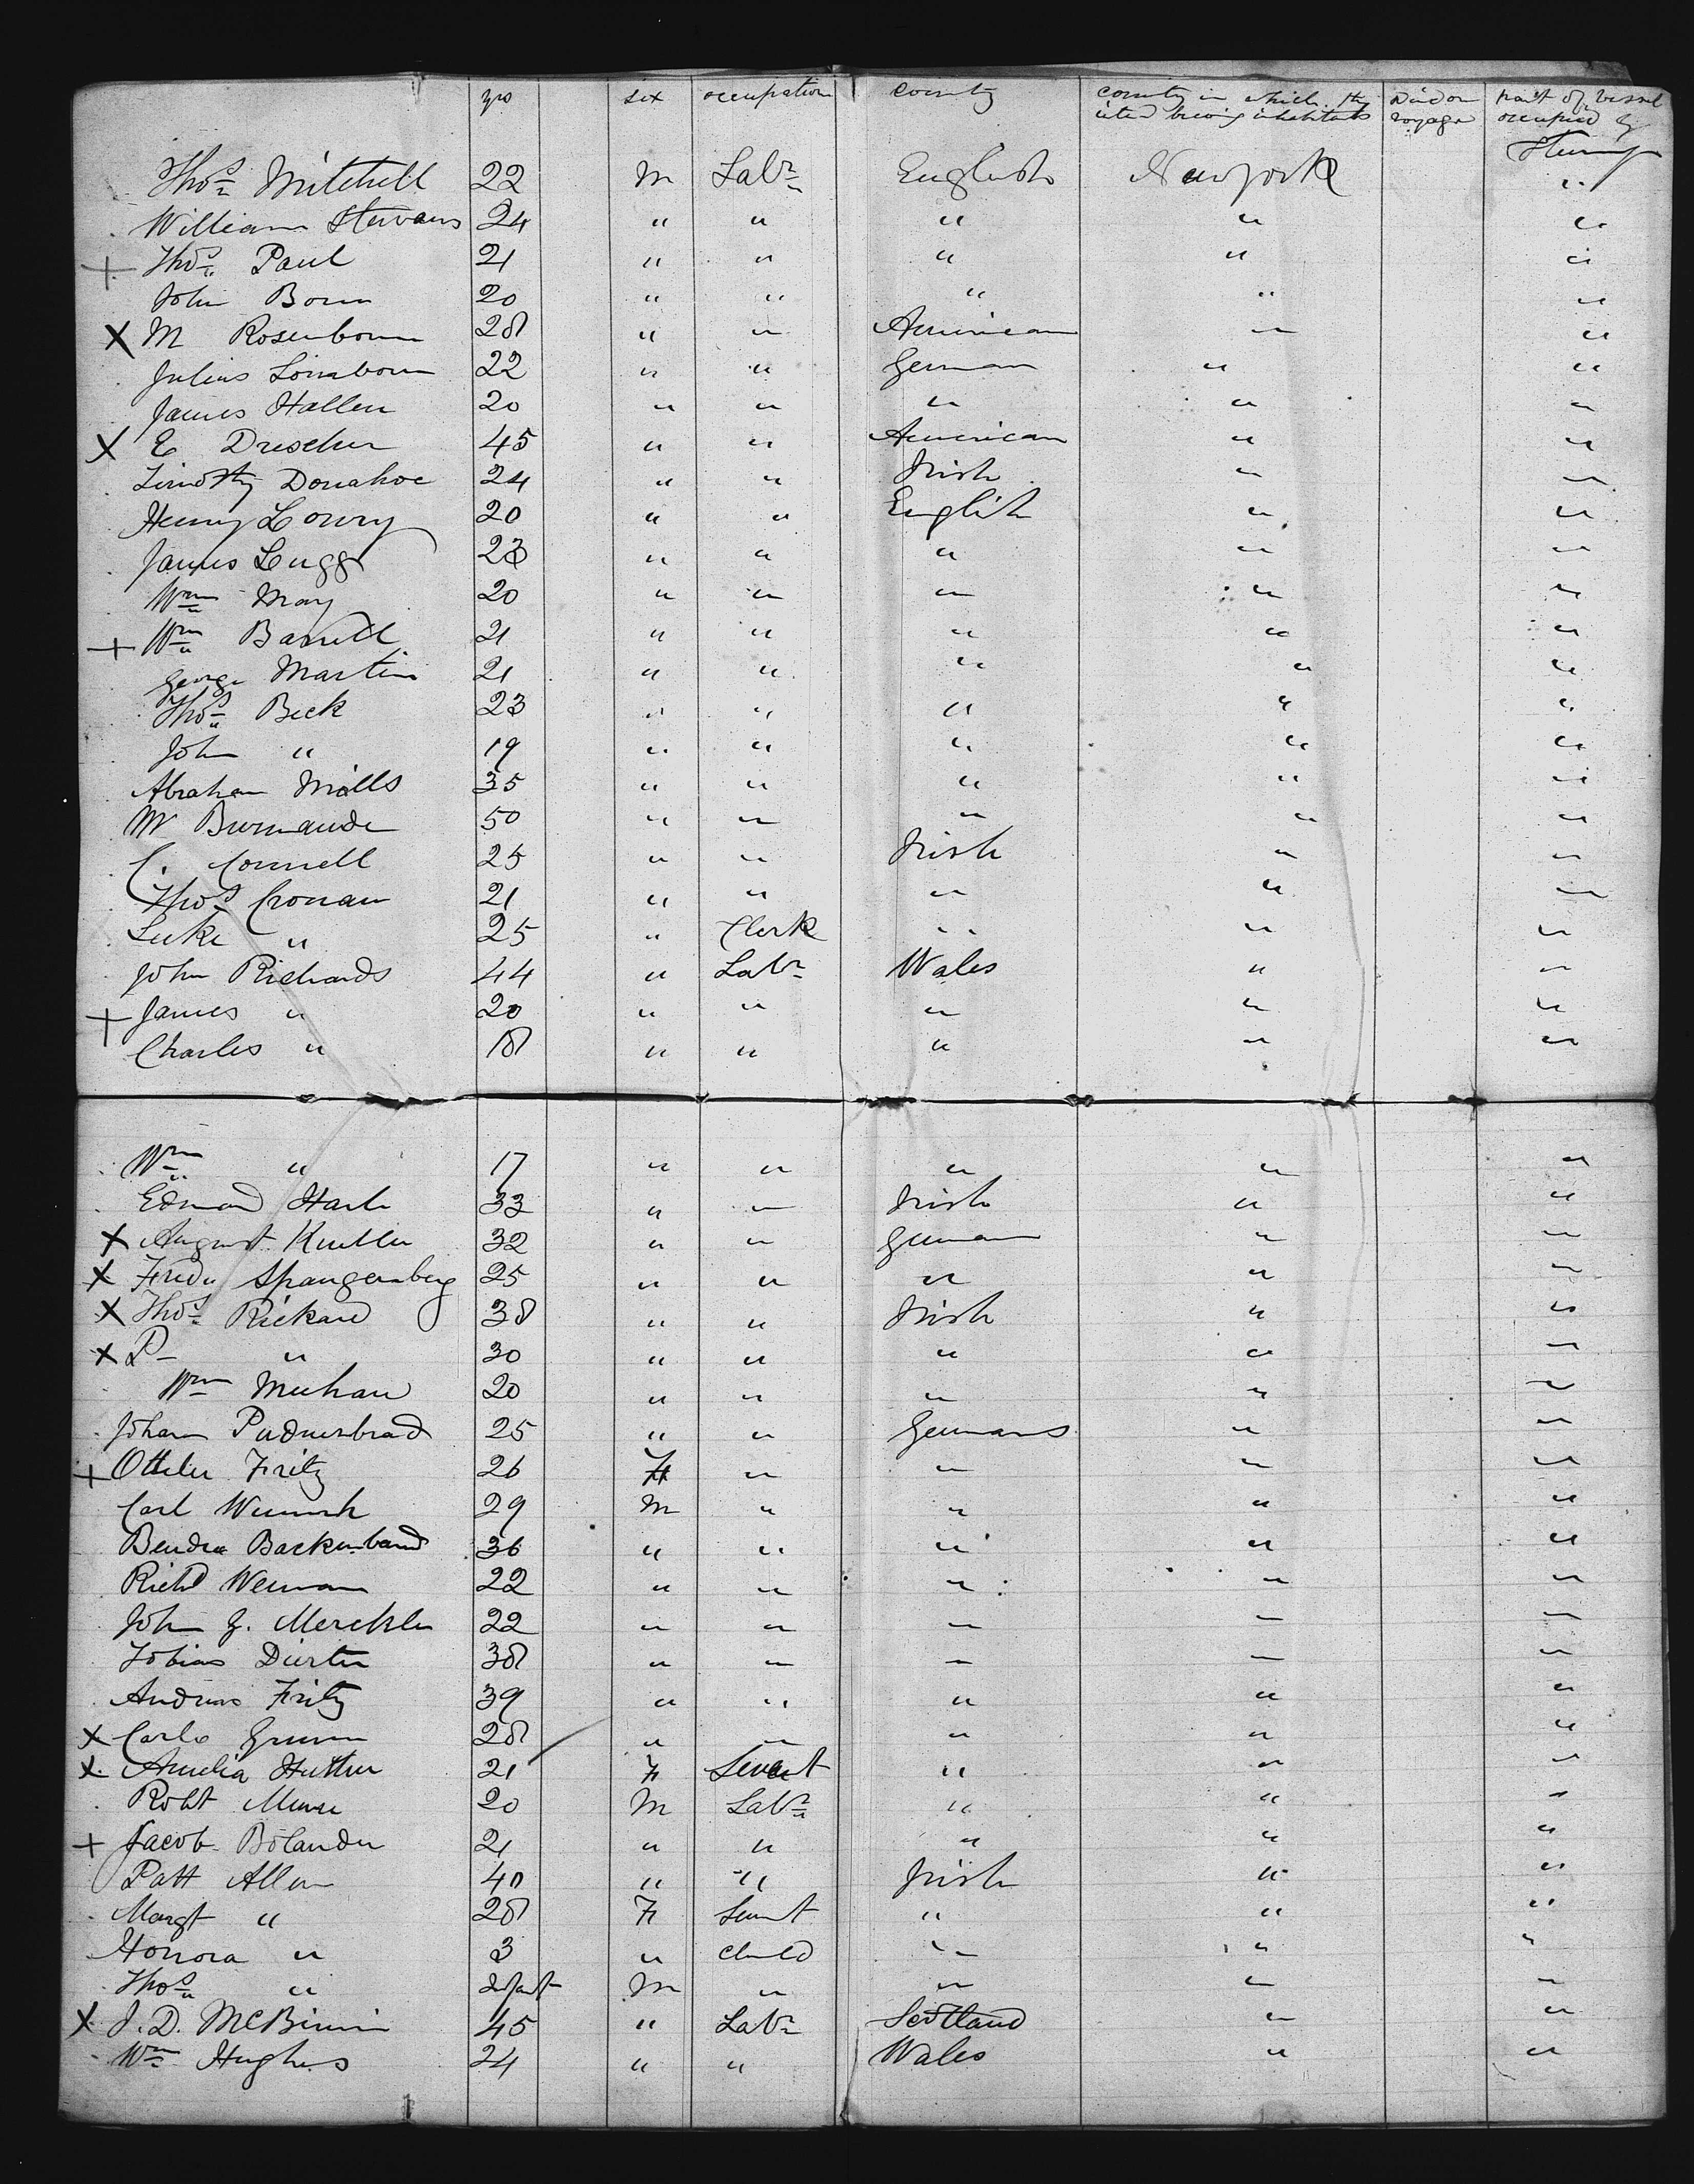 yrs sex occupation country country in which they intend being inhabitants Died on voyage part of vessel occupied by
Steerage
Thos Mitchell 22 M Labr English New york "
William Stevans 24 " " " " "
+ Thos Paul 21 " " " " "
John Born 20 " " " " "
X M Rosenborn 28 " " American " "
Julius 22 " " German " "
James Hallen 20 " " " " "
X E Drescher 45 " " American " "
Timothy Donahoe 24 " " Irish " "
Henry Lowry 20 " " English " "
James Lugg 23 " " " " "
Wm May 20 " " " " "
+ Wm Barrett 21 " " " " "
George Martin 21 " " " " "
Thos Beck 23 " " " " "
John " 19 " " " " "
Abraham Mills 35 " " " " "
W 50 " " " " "
C. Connell 25 " " Irish " "
Thos Cronan 21 " " " " "
Luke " 25 " Clerk " " "
John Richards 44 " Labr Wales " "
+ James " 20 " " " " "
Charles " 18 " " " " "
Wm " 17 " " " " "
Edmond 33 " " Irish " "
X August 32 " " German " "
X Fredr Spangenberg 25 " " " " "
X Thos Rickard 38 " " Irish " "
X P- " 30 " " " " "
Wm Meehan 20 " " " " "
Johann 25 " " Germans " "
+ Fritz 26 F " " " "
Carl 29 M " " " "
36 " " " " "
Richd 22 " " " " "
John 22 " " " " "
Tobias 38 " " " " "
Andreas Fritz 39 " " " " "
X Carlo 28 " " " " "
X Amelia 21 F Servant " " "
Robt 20 M Labr " " "
+ Jacob Bolander 21 " " " " "
Patt Allen 40 " " Irish " "
Margt " 28 F Servnt " " "
Honora " 3 " child " " "
Thos " Infant M " " " "
X J. D. 45 " Labr Scotland " "
Wm Hughes 24 " " Wales " "